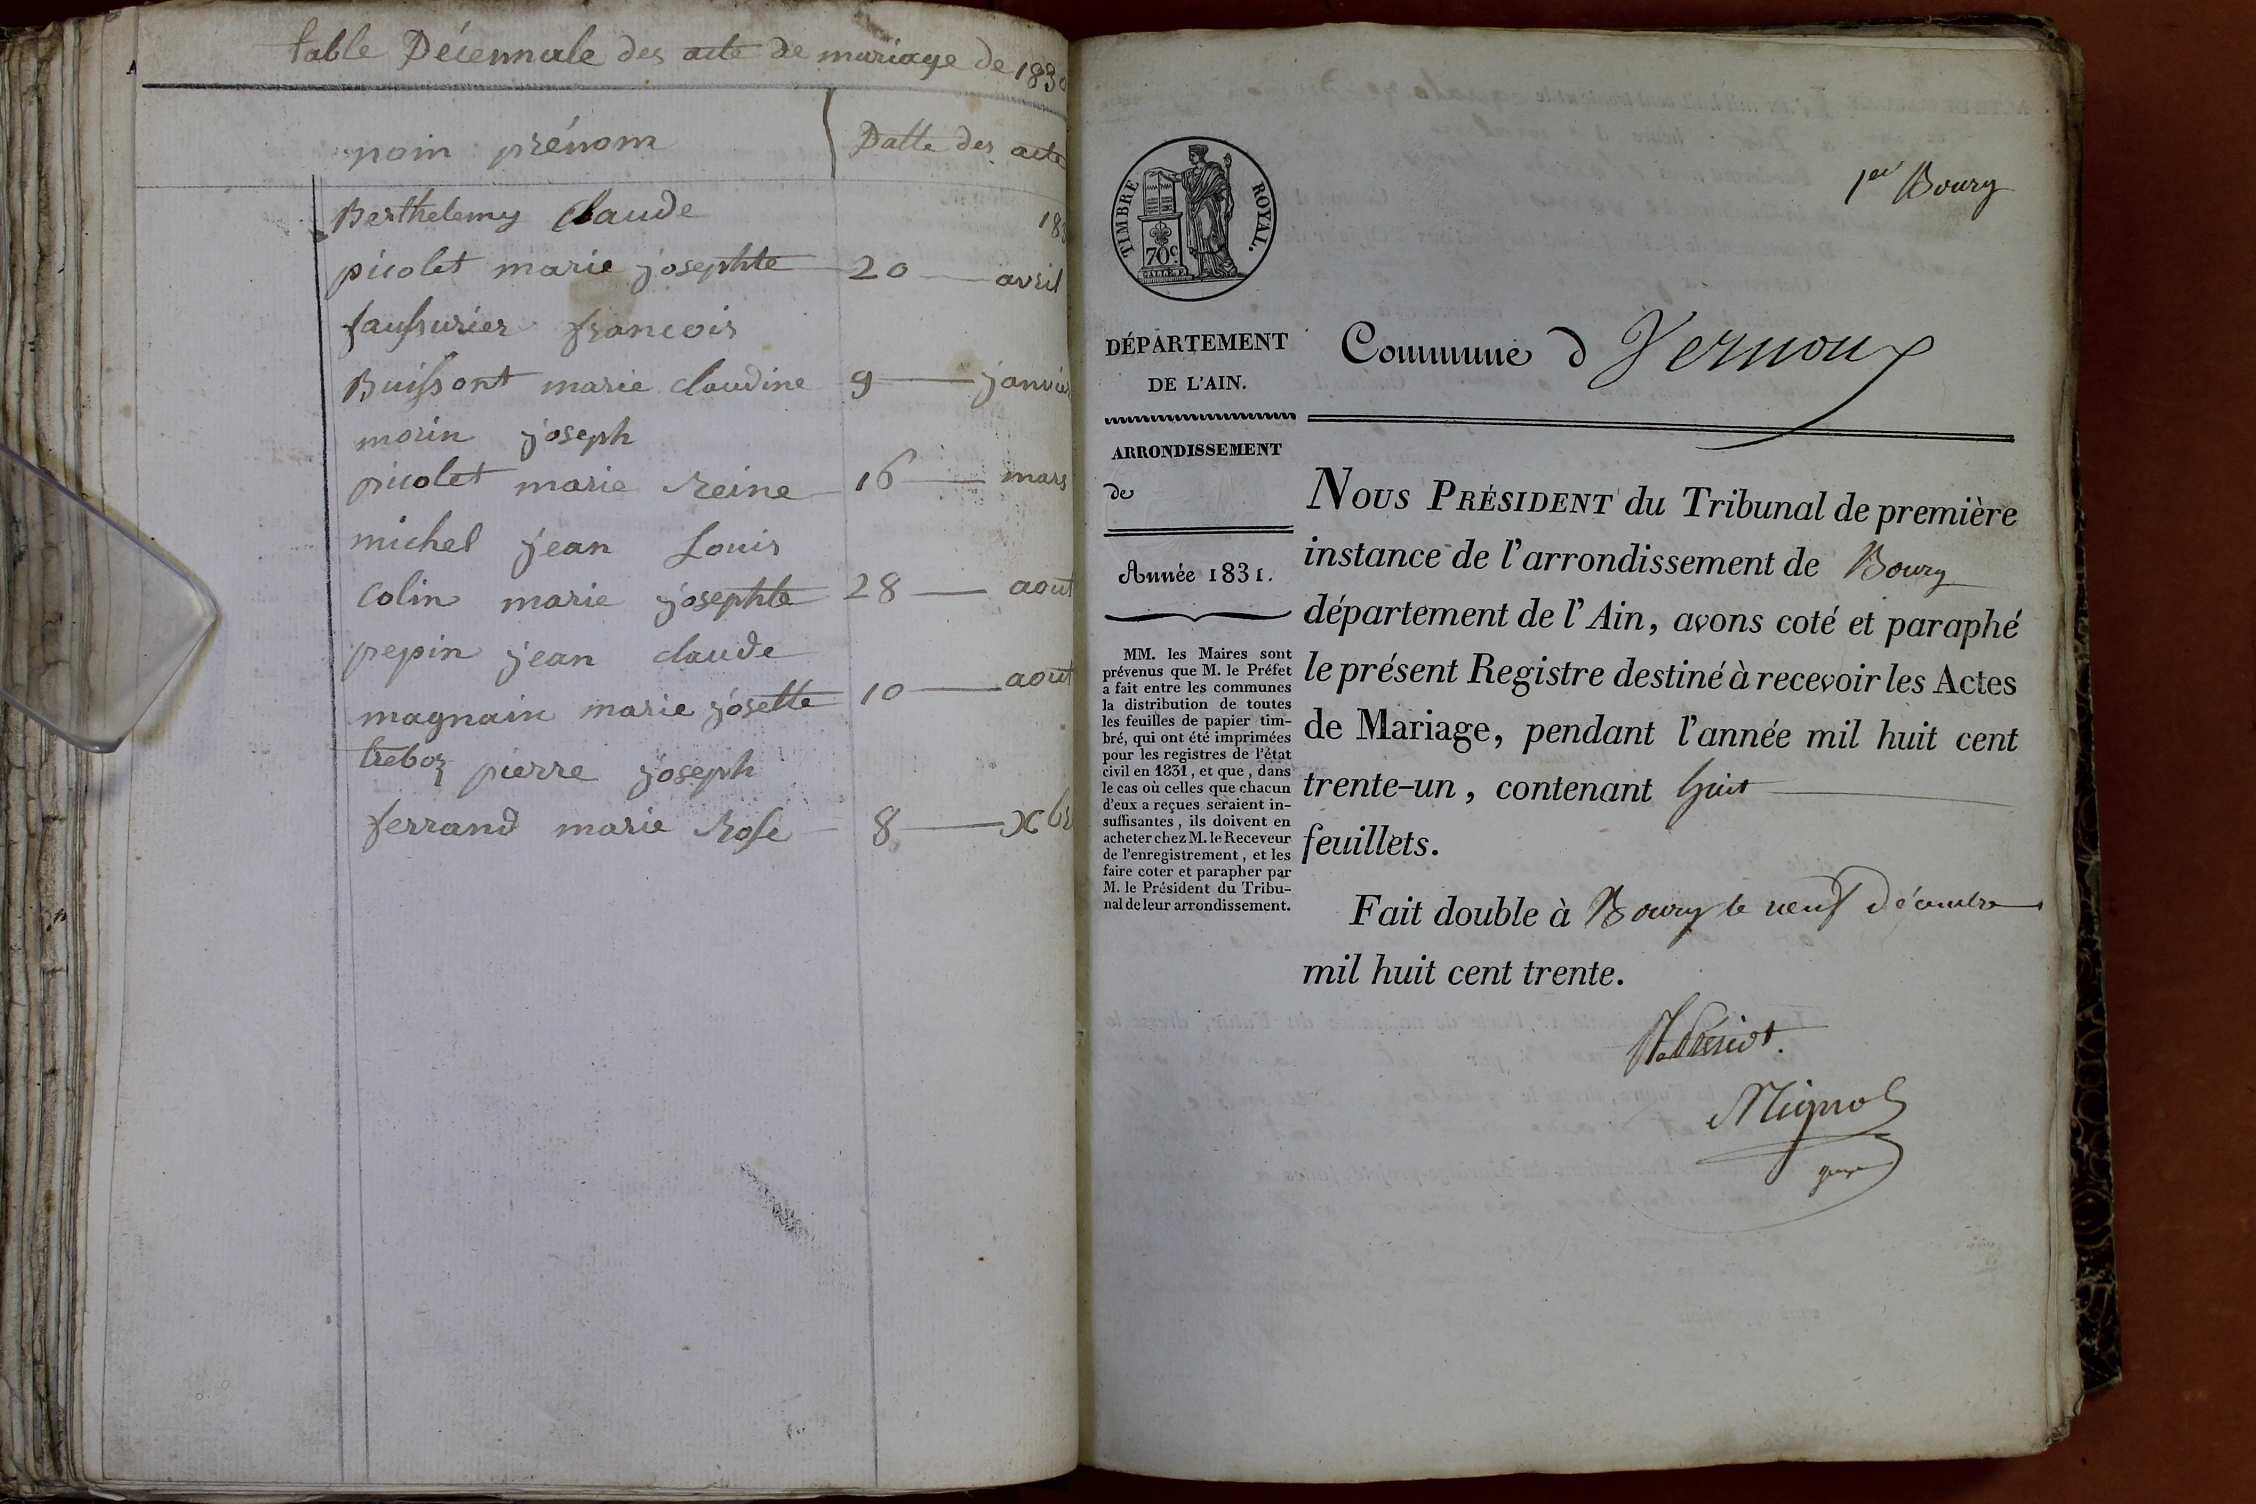 table Décennale des acte de mariage de 1830
nom prénom Datte des acte
Berthelemy Claude 183
picolet marie josephte 20 avril
faussurier francois
Buissont marie claudine 9 janvier
morin joseph
picolet marie Reine 16 mars
michel jean Louis
Colin marie josephte 28 aout
pepin jean claude
magnain marie josette 10 aout
treboz pierre joseph
ferrand marie Rose 8 Xbr
1er Bourg
TIMBRE ROYAL.
70c.
DÉPARTEMENT
DE L'AIN.
ARRONDISSEMENT
de
Année 1831.
MM. les Maires sont
prévenus que M. le Préfet
a fait entre les communes
la distribution de toutes
les feuilles de papier tim-
bré, qui ont été imprimées
pour les registres de l'état
civil en 1831, et que, dans
le cas où celles que chacun
d'eux a reçues seraient in-
suffisantes, ils doivent en
acheter chez M. le Receveur
de l'enregistrement, et les
faire coter et parapher par
M. le Président du Tribu-
nal de leur arrondissement.
Commune d Vernoux
NOUS PRÉSIDENT du Tribunal de première
instance de l'arrondissement de Bourg
département de l'Ain, avons coté et paraphé
le présent Registre destiné à recevoir les Actes
de Mariage, pendant l'année mil huit cent
trente-un, contenant huit
feuillets.
Fait double à Bourg le neuf Décembre
mil huit cent trente.